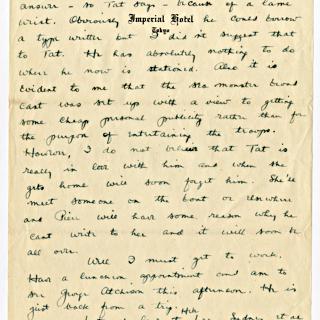 answer - so Tat says - because of a lame
wrist. Obviously he could borrow
Imperial Hotel
Tokyo
a type writter but I didn't suggest that
to Tat. He has absolutely nothing to do
where he now is stationed. Also it is
evident to me that the sea monster broad
cast was set up with a view to getting
some cheap personal publicity rather than for
the purpose of entertaining the troops.
However, I do not believe that Tat is
really in love with him and when she
gets home will soon forget him. She'll
meet someone on the boat or elsewhere
and Pier will have some reason why he
cant write to her and it will soon be
all over.
Well I must get to work.
Have a luncheon appointment and am to
see George Atchison this afternoon. He is
just back from a trip.